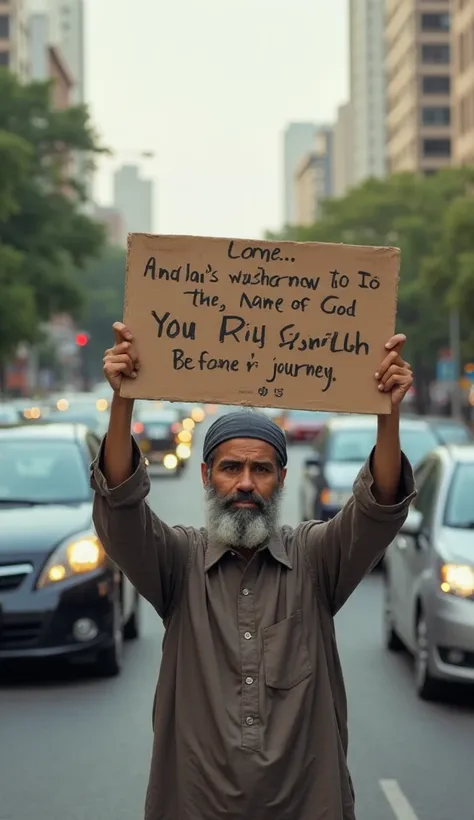 Lome...
And lai's washornow to Io
the, Name of God
You Riy
Before i journey.